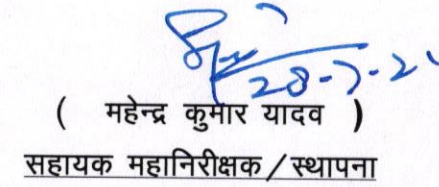 28-7-2
( महेन्द्र कुमार यादव )
सहायक महानिरीक्षक/स्थापना